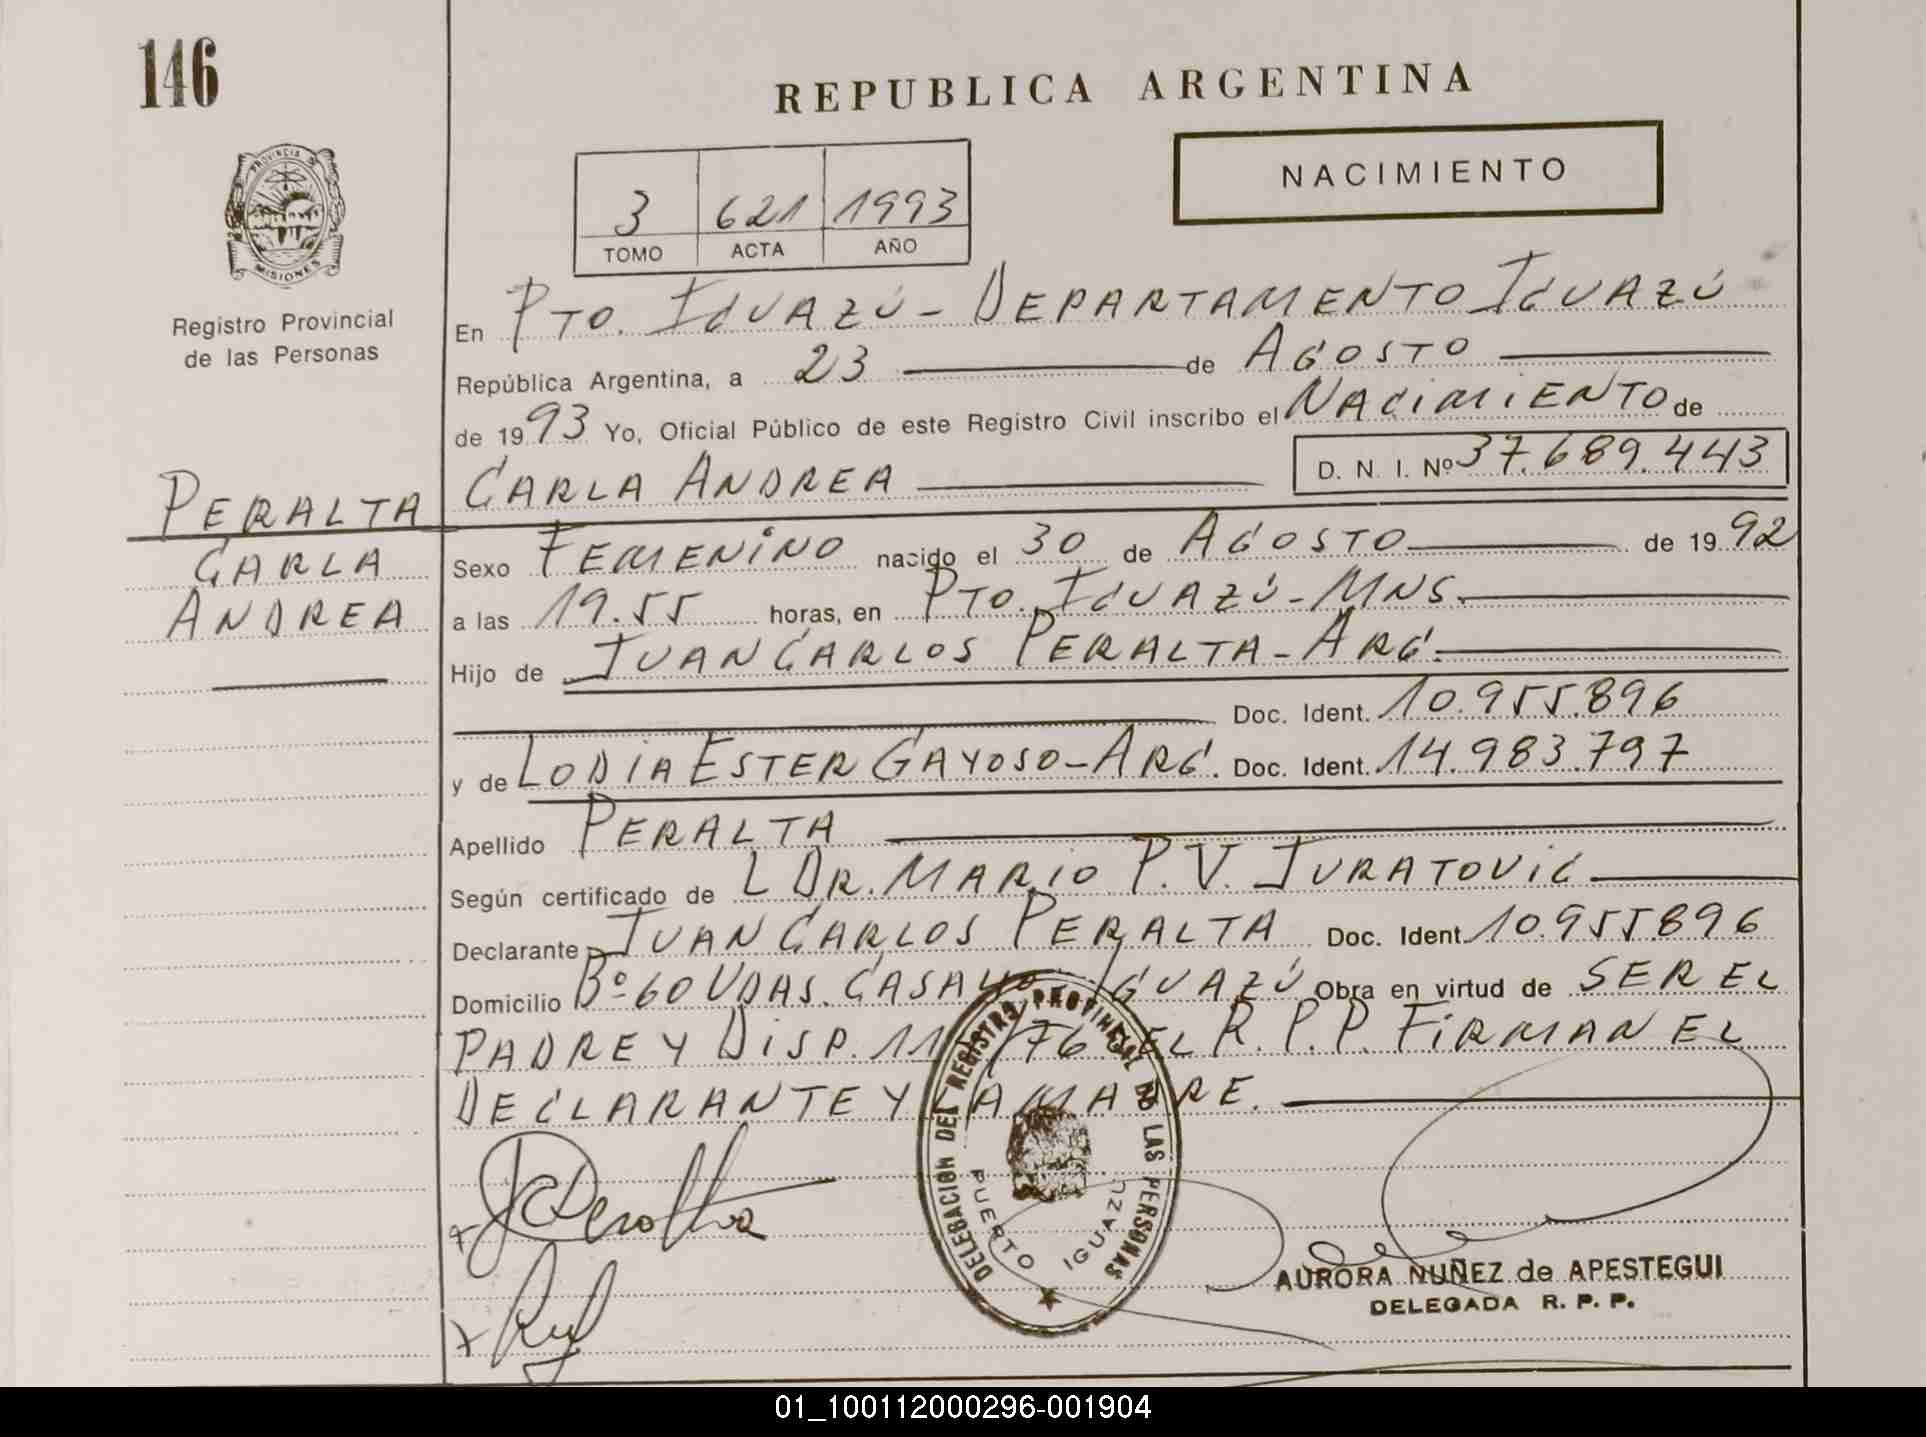 146
REPUBLICA ARGENTINA
NACIMIENTO
3 621 1993
TOMO ACTA AÑO
PROVINCIA DE
MISIONES
Registro Provincial
de las Personas
En PTO. IGUAZÚ - DEPARTAMENTO IGUAZÚ
República Argentina, a 23 de AGOSTO
de 1993 Yo, Oficial Público de este Registro Civil inscribo el NACIMIENTO de
CARLA ANDREA D. N. I. Nº 37.689.443
PERALTA
CARLA
ANDREA
Sexo FEMENINO nacido el 30 de AGOSTO de 1992
a las 19.55 horas, en PTO. IGUAZÚ - MNS.
Hijo de JUAN CARLOS PERALTA - ARG.
Doc. Ident. 10.955.896
y de LODIA ESTER GAYOSO - ARG. Doc. Ident. 14.983.797
Apellido PERALTA
Según certificado de L DR. MARIO P. V. JURATOVIC
Declarante JUAN CARLOS PERALTA Doc. Ident. 10.955.896
Domicilio Bº 60 VDAS. CASA IGUAZÚ Obra en virtud de SER EL
PADRE Y DISP. 11 /76 EL R. P. P. FIRMAN EL
DECLARANTE Y LA MADRE.
DELEGACION DEL REGISTRO PROVINCIAL DE LAS PERSONAS
PUERTO IGUAZU
JC Peralta
AURORA NUÑEZ de APESTEGUI
DELEGADA R. P. P.
01_100112000296-001904